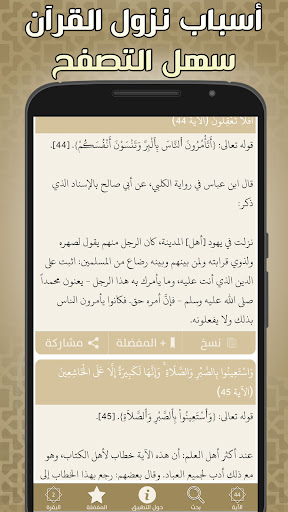 أسباب نزول القرآن
سهل التصفح
أفلا تعقلون (الآية 44)
قوله تعالى: {أَتَأْمُرُونَ ٱلنَّاسَ بِٱلْبِرِّ وَتَنْسَوْنَ أَنْفُسَكُمْ}. [44].
قال ابن عباس في رواية الكلبي، عن أبي صالح بالإسناد الذي
ذكر:
نزلت في يهود [أهل] المدينة، كان الرجل منهم يقول لصهره
ولذوي قرابته ولمن بينهم وبينه رضاع من المسلمين: اثبت على
الدين الذي أنت عليه، وما يأمرك به هذا الرجل - يعنون محمداً
صلى الله عليه وسلم - فإن أمره حق. فكانوا يأمرون الناس
بذلك ولا يفعلونه.
نسخ
+ المفضلة
مشاركة
وَاسْتَعِينُوا بِالصَّبْرِ وَالصَّلَاةِ ۚ وَإِنَّهَا لَكَبِيرَةٌ إِلَّا عَلَى الْخَاشِعِينَ
(الآية 45)
قوله تعالى: {وَٱسْتَعِينُواْ بِٱلصَّبْرِ وَٱلصَّلَٰوةِ}. [45].
عند أكثر أهل العلم: أن هذه الآية خطاب لأهل الكتاب، وهو
مع ذلك أدب لجميع العباد. وقال بعضهم: رجع بهذا الخطاب إلى
44
الآية
بحث
حول التطبيق
المفضلة
2
البقرة